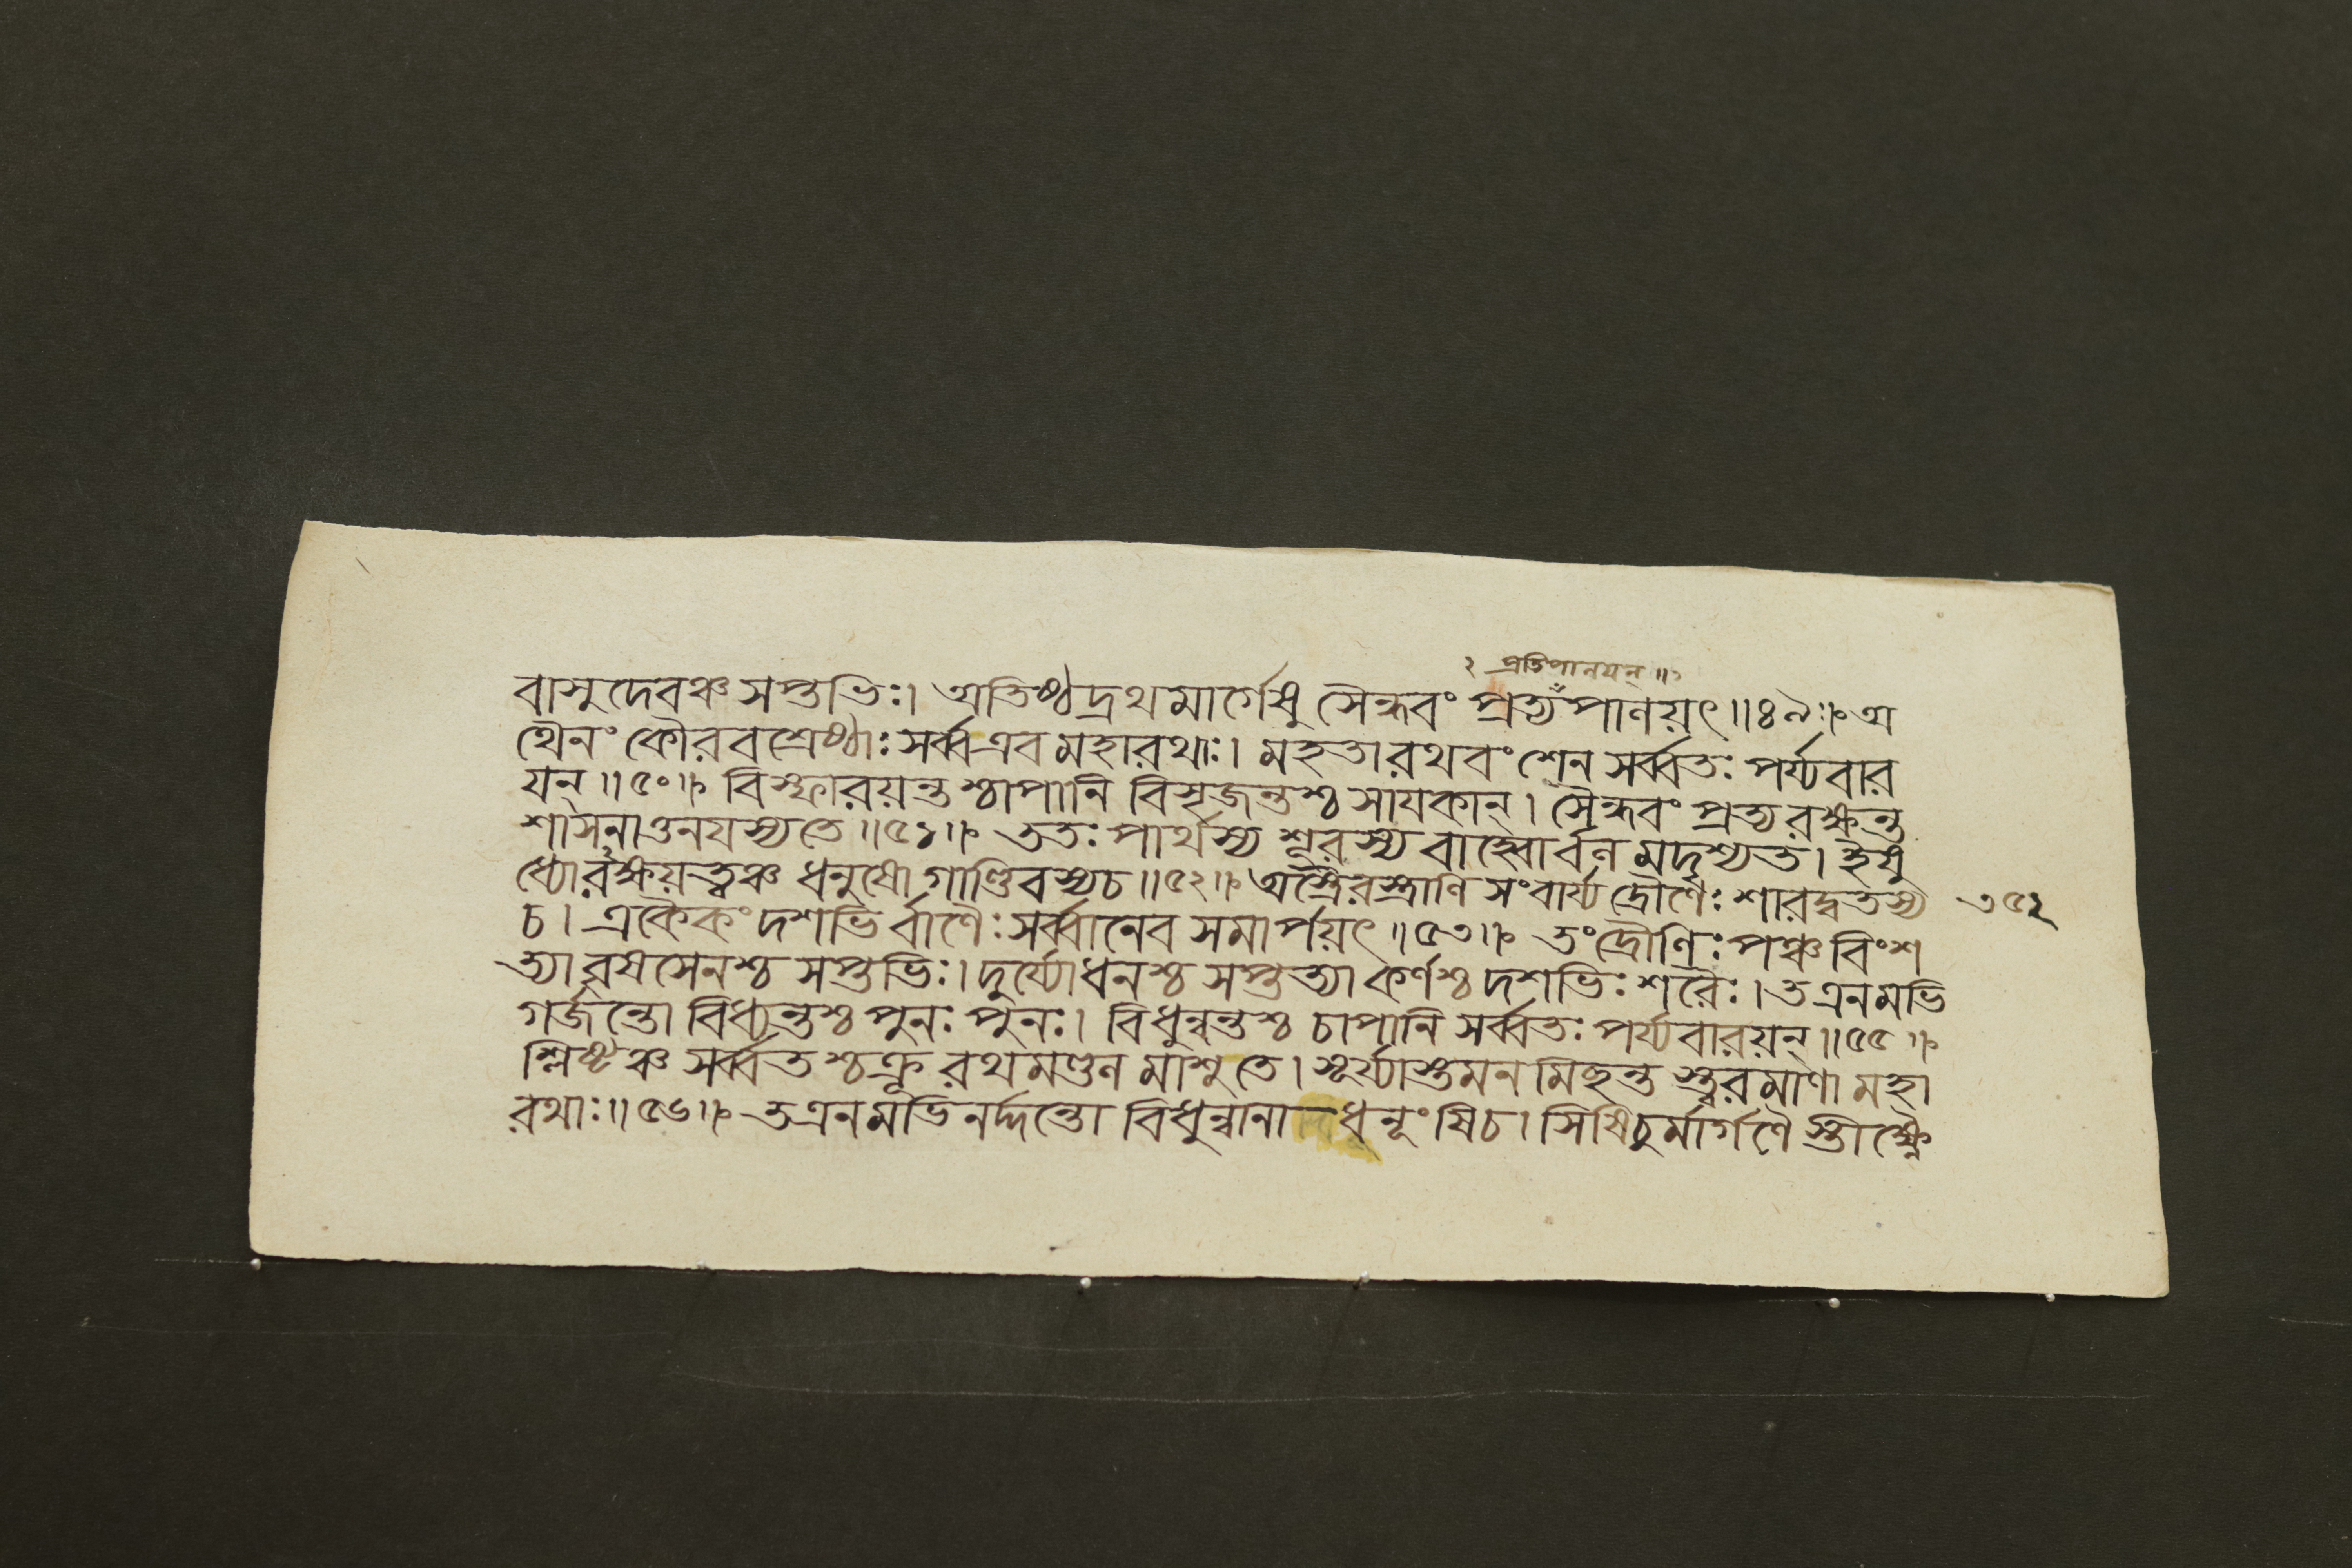 ২ প্রতিপালযন্ ॥১
বাসুদেবঞ্চ সপ্তভিঃ। অতিষ্ঠদ্রথমার্গেষু সৈন্ধবং প্রত্যপালয়ৎ॥৪৯॥ অ
থৈনং কৌরবশ্রেষ্ঠাঃ সর্ব্ব এব মহারথাঃ। মহতা রথবংশেন সর্ব্বতঃ পর্য্যবার
যন্॥৫০॥ বিস্ফারয়ন্তশ্চাপানি বিসৃজন্তশ্চ সাযকান্। সৈন্ধবং প্রত্যরক্ষন্ত
শাসনাত্তনযস্য তে॥৫১॥ ততঃ পার্থস্য শূরস্য বাহ্বোর্বল মদৃশ্যত। ইষু
ধ্যোরক্ষয়ত্বঞ্চ ধনুষো গাণ্ডিবস্য চ॥৫২॥ অস্ত্রৈরস্ত্রাণি সংবার্য্য দ্রৌণেঃ শারদ্বতস্য
৩৫২
চ। একৈকং দশভির্বাণৈঃ সর্ব্বানেব সমার্পয়ৎ॥৫৩॥ তং দ্রৌণিঃ পঞ্চবিংশ
ত্যা বৃষসেনশ্চ সপ্তভিঃ। দুর্য্যোধনশ্চ সপ্তত্যা কর্ণশ্চ দশভিঃ শরৈঃ। ত এনমভি
গর্জন্তো বিধ্যন্তশ্চ পুনঃ পুনঃ। বিধুন্বন্তশ্চ চাপানি সর্ব্বতঃ পর্য্যবারয়ন্॥৫৫॥
শ্লিষ্টঞ্চ সর্ব্বতশ্চক্রূ রথমণ্ডল মাশু তে। সূর্য্যাস্তমন মিছন্ত স্ত্বরমাণা মহা
রথাঃ॥৫৬॥ ত এনমভিনর্দ্দন্তো বিধুন্বানা ধনূংষি চ। সিষিচুর্মার্গণৈ স্তীক্ষ্ণৈ